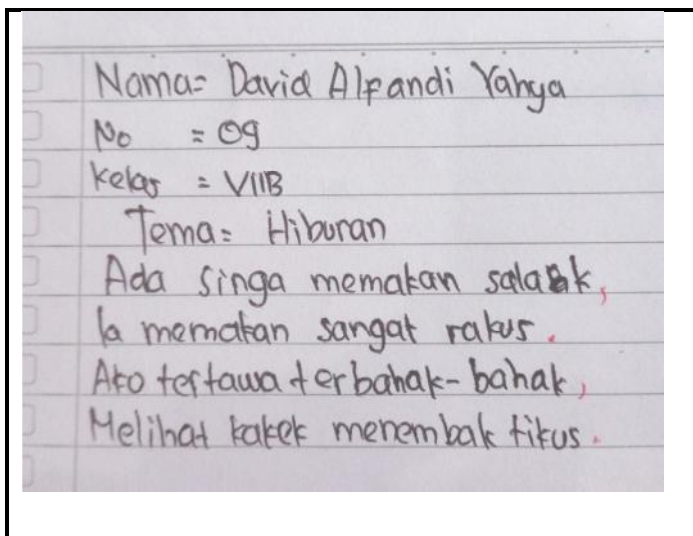 Nama= David Alfandi Yahya
No = 09
Kelas = VIIB
Tema= Hiburan
Ada singa memakan salak,
Ia memakan sangat rakus.
Aku tertawa terbahak-bahak,
Melihat kakek menembak tikus.